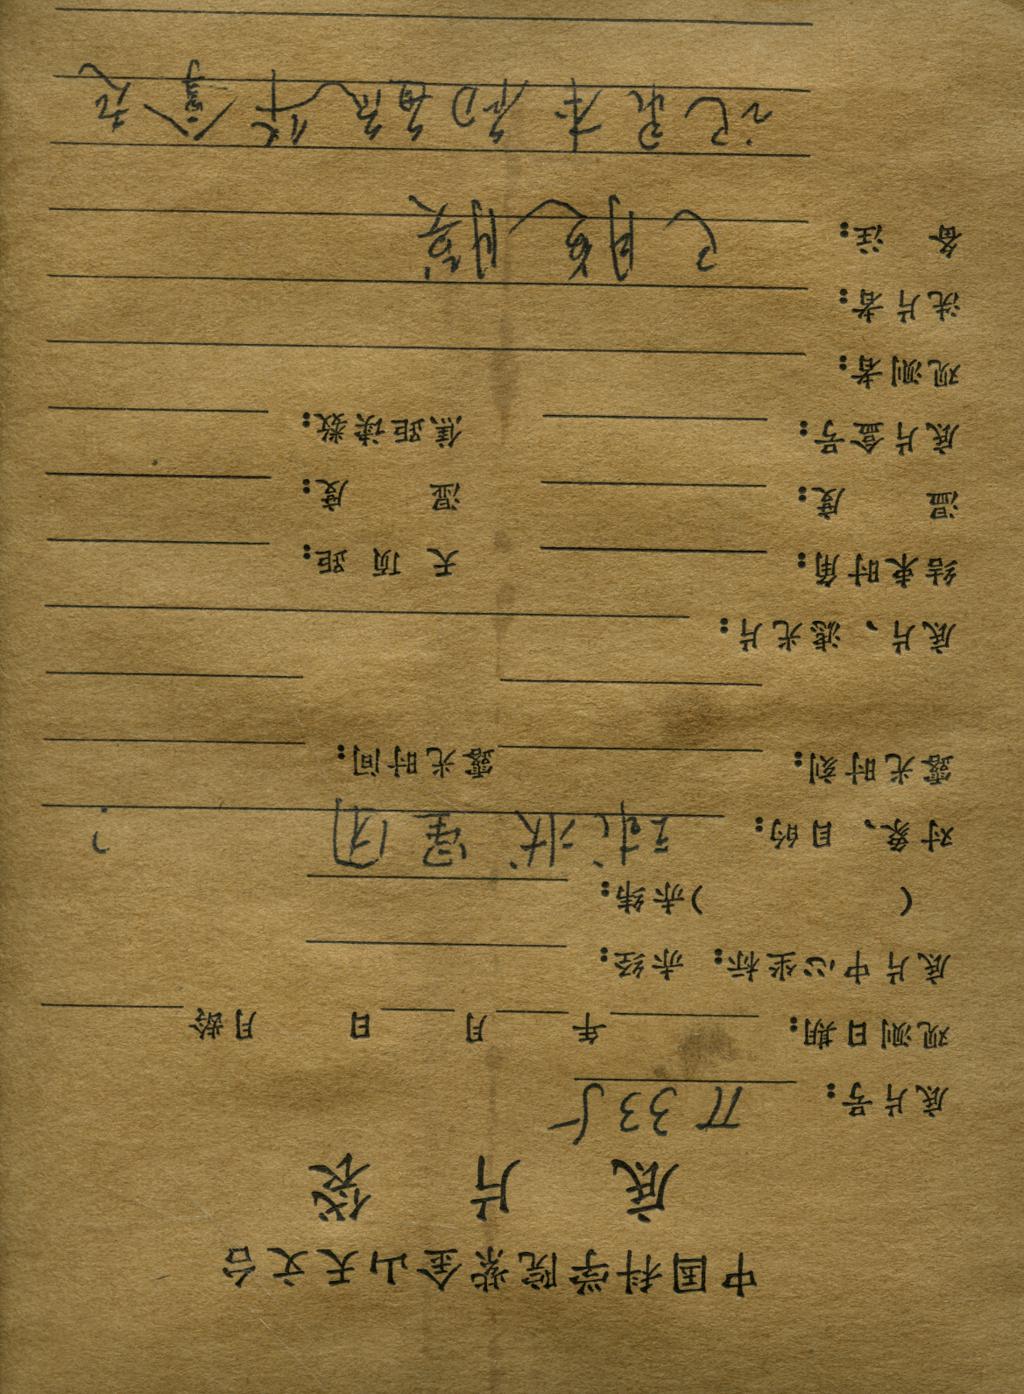 中国科学院紫金山天文台
底片袋
底片号: π335
观测日期: 年 月 日 月龄
底片中心坐标: 赤经:
( )赤纬:
对象、目的: 球状星团 ?
露光时刻: 露光时间:
底片、滤光片:
结束时角: 天顶距:
温度: 湿度:
底片盒号: 焦距读数:
观测者:
洗片者:
备注: 已
记录本和